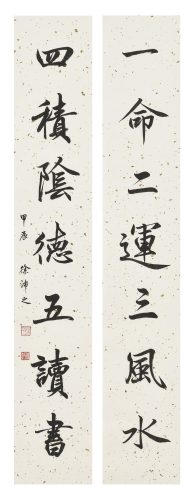 一命二運三風水
四積陰德五讀書
甲辰 徐沛之